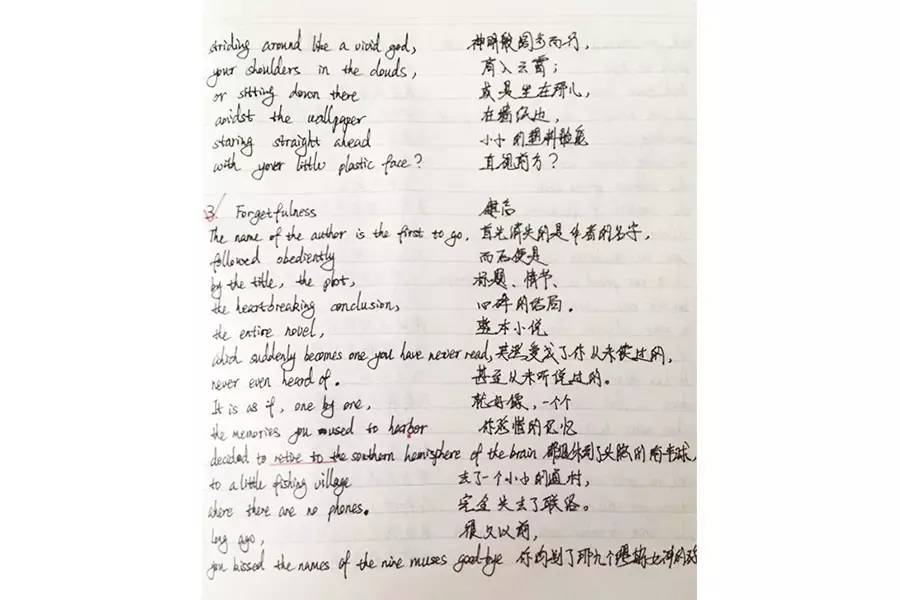 striding around like a vivid god, 神明般阔步而行,
your shoulders in the clouds, 肩入云霄;
or sitting down there 或是坐在那儿,
amidst the wallpaper 在墙纸边,
staring straight ahead 小小的塑料脸庞
with your little plastic face? 直视前方?
3. Forgetfulness 健忘
The name of the author is the first to go, 首先消失的是作者的名字,
followed obediently 而后便是
by the title, the plot, 标题、情节、
the heartbreaking conclusion, 心碎的结局。
the entire novel, 整本小说
which suddenly becomes one you have never read, 变成了你从未读过的,
never even heard of. 甚至从未听说过的。
It is as if, one by one, 就好像,一个个
the memories you used to harbor 你的记忆
decided to retire to the southern hemisphere of the brain 都退休到了头脑的南半球,
to a little fishing village 去了一个小小的渔村,
where there are no phones. 完全失去了联络。
Long ago, 很久以前,
you kissed the names of the nine muses good-bye 你吻别了那九个缪斯女神的